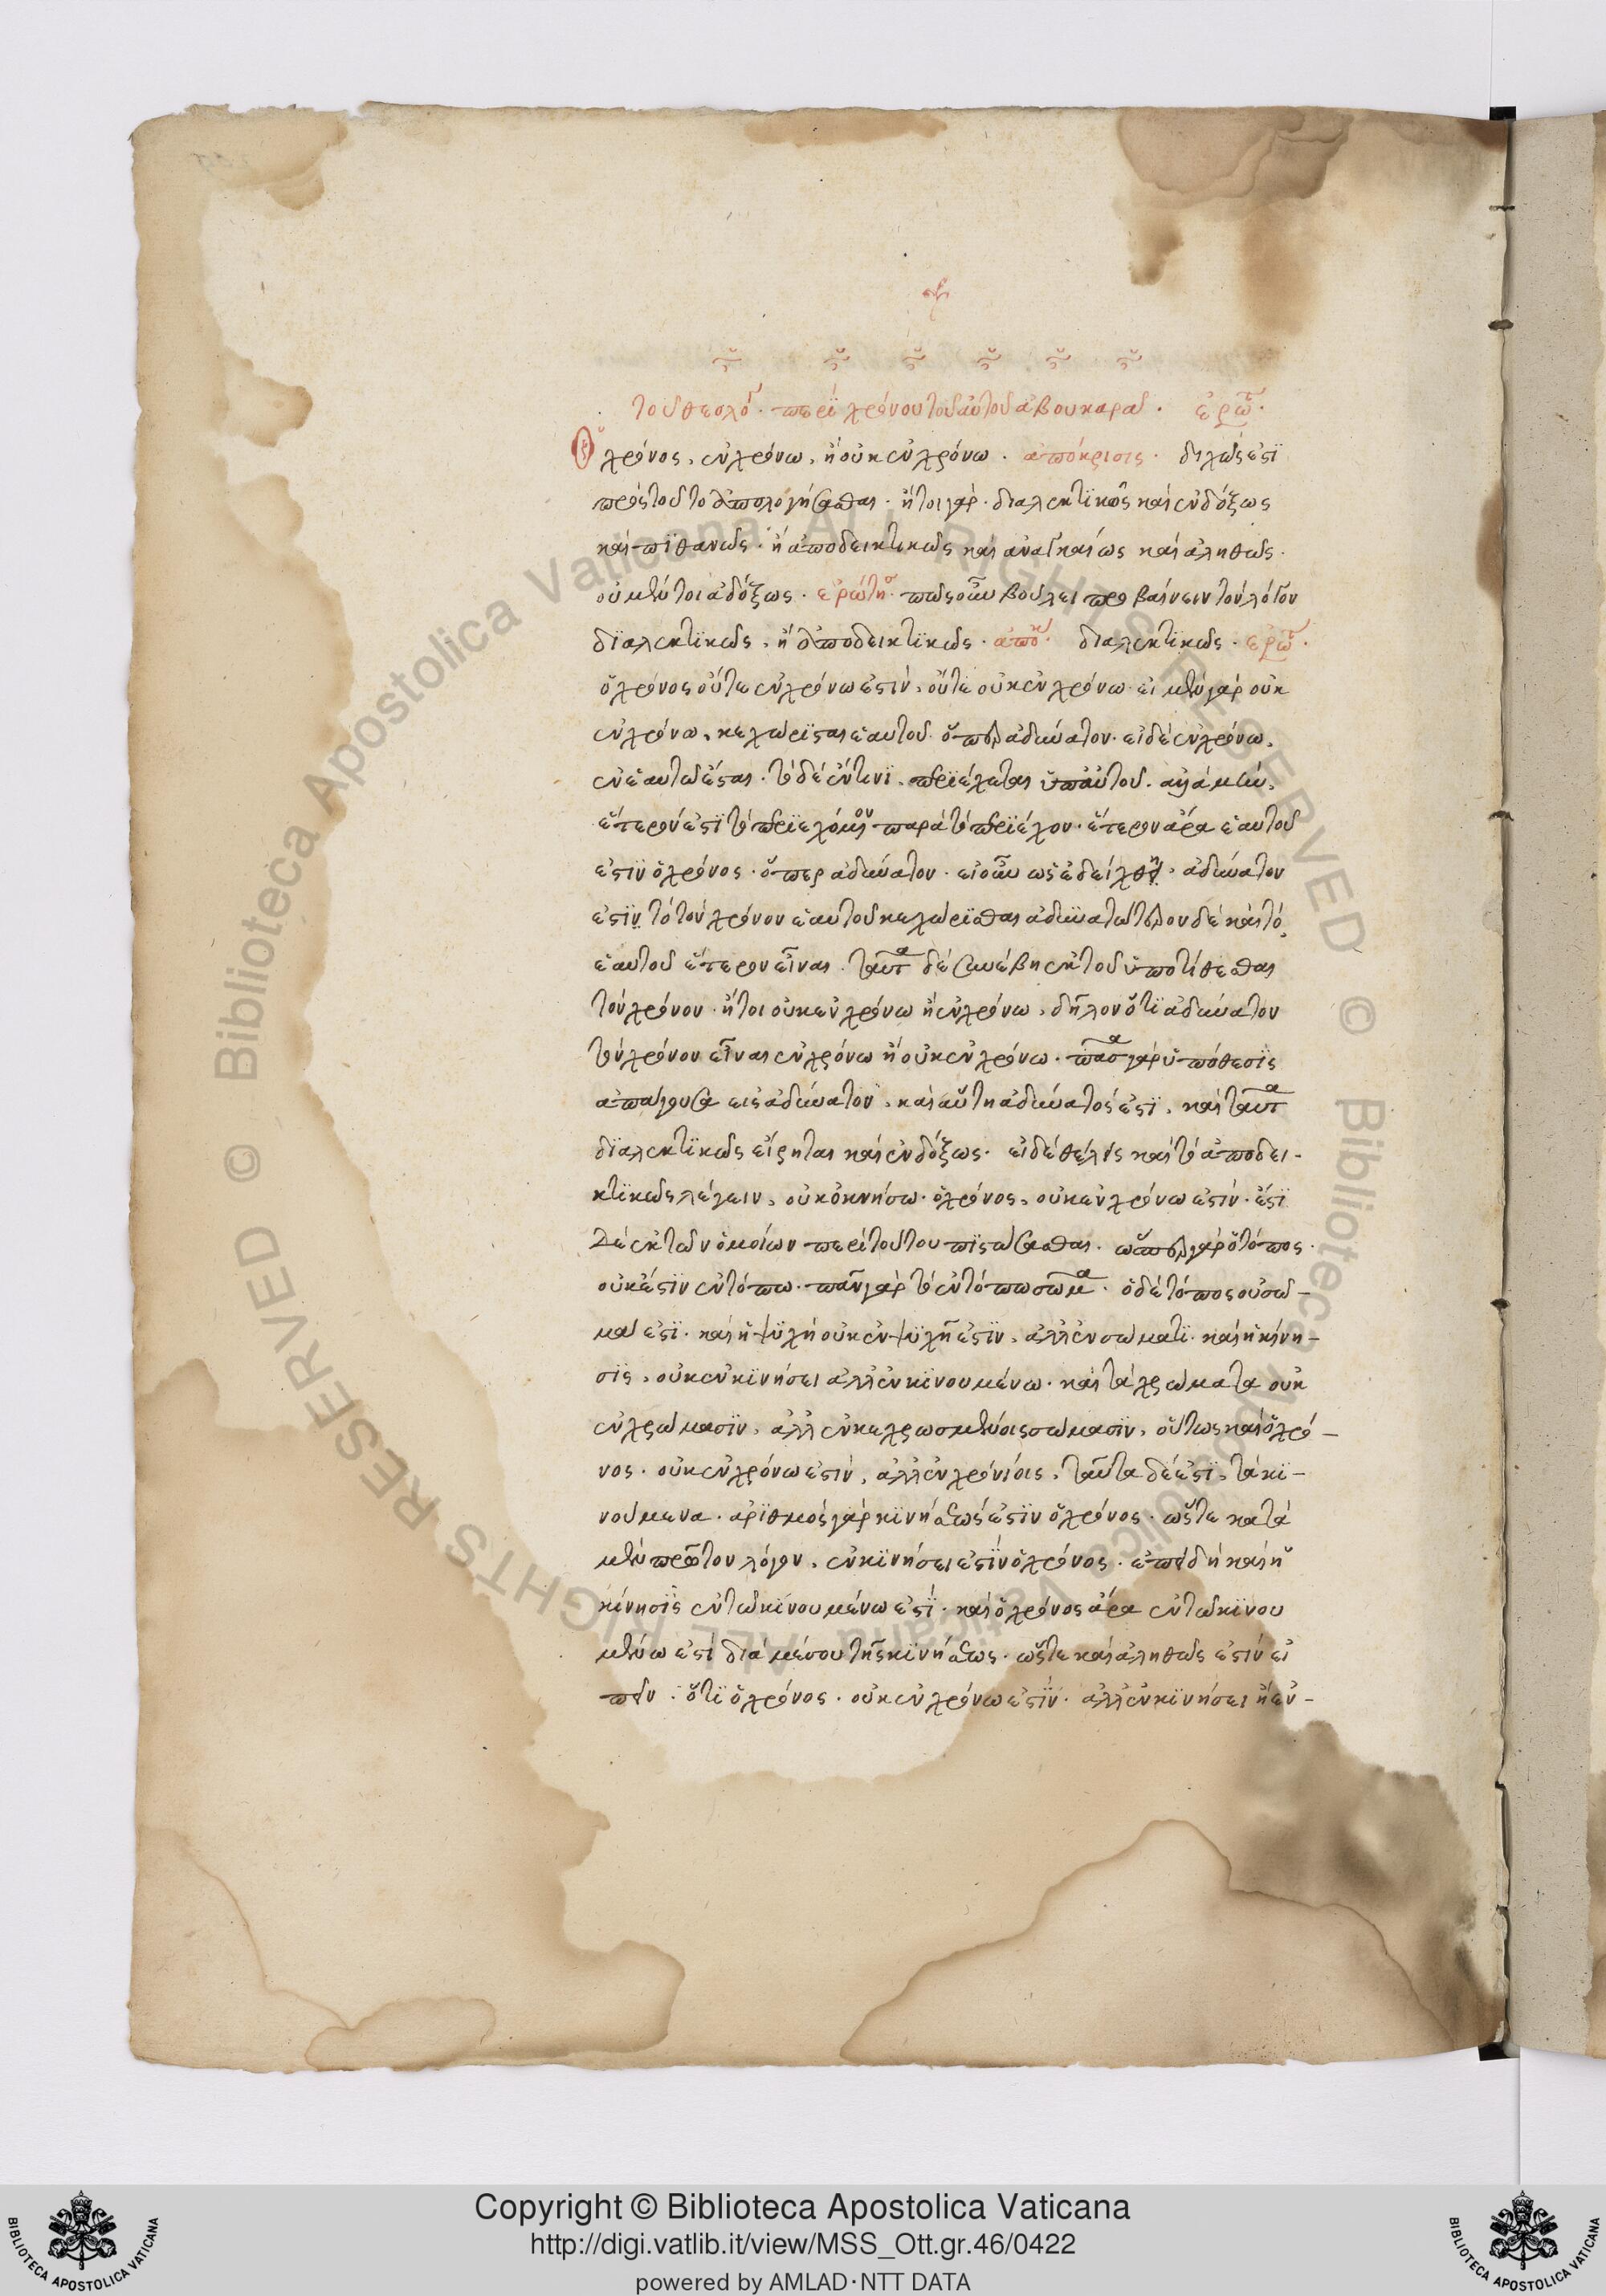 τοῦ θεολό· περὶ χρόνου τοῦ αὐτοῦ ἀβουκαρᾶ · ἐρώτ·
Ὁ χρόνος, ἐν χρόνω, ἢ οὐκ ἐν χρόνω · ἀπόκρισις · διχῶς ἐστὶ
πρὸς τοῦτο ἀπολογήσασθαι · ἤτοι γὰρ · διαλεκτικῶς καὶ ἐνδόξως
καὶ πιθανῶς · ἢ ἀποδεικτικῶς καὶ ἀναγκαίως καὶ ἀληθῶς ·
οὐ μέντοι ἀδόξως · ἐρώτη · πῶς οὖν βούλει προβαίνειν τὸν λόγον
διαλεκτικῶς, ἢ ἀποδεικτικῶς · ἀπόκ· διαλεκτικῶς · ἐρώτ·
ὁ χρόνος οὔτε ἐν χρόνω ἐστὶν, οὔτε οὐκ ἐν χρόνω· εἰ μὲν γὰρ οὐκ
ἐν χρόνω, κεχώρισται ἑαυτοῦ· ὅπερ ἀδύνατον· εἰ δὲ ἐν χρόνω,
ἐν ἑαυτῶ ἔσται · τὸ δὲ ἔν τινι, περιέχεται ὑπ' αὐτοῦ. ἀλλὰ μὴν,
ἕτερόν ἐστι τὸ περιεχόμενον παρὰ τὸ περιέχον· ἕτερον ἄρα ἑαυτοῦ
ἐστιν ὁ χρόνος · ὅπερ ἀδύνατον · εἰ οὖν ὡς ἐδείχθη, ἀδύνατον
ἐστὶν τὸ τὸν χρόνον ἑαυτοῦ κεχωρίσθαι ἀδυνατώτερον δὲ καὶ τὸ
ἑαυτοῦ ἕτερον εἶναι. ταῦτα δὲ συνέβη ἐκ τοῦ ὑποτίθεσθαι
τὸν χρόνον · ἤτοι οὐκ ἐν χρόνω ἢ ἐν χρόνω, δῆλον ὅτι ἀδύνατον
τὸν χρόνον εἶναι ἐν χρόνω ἢ οὐκ ἐν χρόνω · πᾶσα γὰρ ὑπόθεσις
ἀπάγουσα εἰς ἀδύνατον, καὶ αὕτη ἀδύνατός ἐστι, καὶ ταῦτα
διαλεκτικῶς εἴρηται καὶ ἐνδόξως· εἰ δὲ θέλεις καὶ τὸ ἀποδει-
κτικῶς λέγειν, οὐκ ὀκνήσω· ὁ χρόνος, οὐκ ἐν χρόνω ἐστίν · ἔστι
δὲ ἐκ τῶν ὁμοίων περὶ τούτου πιστώσασθαι. ὥσπερ γὰρ ὁ τόπος ·
οὐκ ἔστιν ἐν τόπω· πᾶν γὰρ τὸ ἐν τόπω σῶμα · ὁ δὲ τόπος οὐ σῶ-
μα ἐστι· καὶ ἡ ψυχὴ οὐκ ἐν ψυχῆ ἐστιν, ἀλλ' ἐν σώματι· καὶ ἡ κίνη-
σις, οὐκ ἐν κινήσει ἀλλ' ἐν κινουμένω· καὶ τὰ χρώματα οὐκ
ἐν χρώμασιν, ἀλλ' ἐν κεχρωσμένοις σώμασιν, οὕτως καὶ ὁ χρό-
νος · οὐκ ἐν χρόνω ἐστιν, ἀλλ' ἐν χρονίοις, ταῦτα δέ ἐστι, τὰ κι-
νούμενα · ἀριθμὸς γὰρ κινήσεώς ἐστιν ὁ χρόνος · ὥστε κατὰ
μὲν πρῶτον λόγον, ἐν κινήσει ἐστὶν ὁ χρόνος · ἐπειδὴ καὶ ἡ
κίνησις ἐν τῶ κινουμένω ἐστὶ · καὶ ὁ χρόνος ἄρα ἐν τῶ κινου
μένω ἐστὶ διὰ μέσου τῆς κινήσεως · ὥστε καὶ ἀληθῶς ἐστὶν εἰ
πεῖν · ὅτι ὁ χρόνος · οὐκ ἐν χρόνω ἐστὶν · ἀλλ' ἐν κινήσει ἢ ἐν-
Copyright © Biblioteca Apostolica Vaticana
http://digi.vatlib.it/view/MSS_Ott.gr.46/0422
powered by AMLAD·NTT DATA
BIBLIOTECA APOSTOLICA VATICANA
BIBLIOTECA APOSTOLICA VATICANA
© Biblioteca Apostolica Vaticana ALL RIGHTS RESERVED © Biblioteca Apostolica Vaticana ALL RIGHTS RESERVED